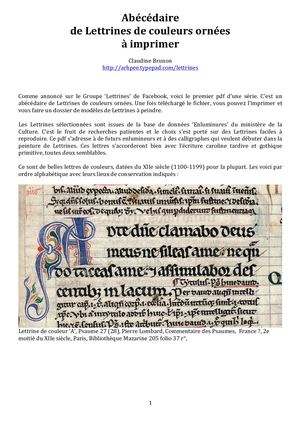 Abécédaire
de Lettrines de couleurs ornées
à imprimer
Claudine Brunon
http://arhpee.typepad.com/lettrines
Comme annoncé sur le Groupe 'Lettrines' de Facebook, voici le premier pdf d'une série. C'est un
abécédaire de Lettrines de couleurs ornées. Une fois téléchargé le fichier, vous pouvez l'imprimer et
vous faire un dossier de modèles de Lettrines à peindre.
Les Lettrines sélectionnées sont issues de la base de données 'Enluminures' du ministère de la
Culture. C'est le fruit de recherches patientes et le choix s'est porté sur des Lettrines faciles à
reproduire. Ce pdf s'adresse à de futurs enlumineurs et à des calligraphes qui veulent débuter dans la
peinture de Lettrines. Ces lettres s'accorderont bien avec l'écriture caroline tardive et gothique
primitive, toutes deux semblables.
Ce sont de belles lettres de couleurs, datées du XIIe siècle (1100-1199) pour la plupart. Les voici par
ordre alphabétique avec leurs lieux de conservation indiqués :
A
te dn̄e clamabo deus
meus ne sileas a me ne q̄n
do taceas a me 7 assimilabor des
centib; in lacum.
Lettrine de couleur 'A', Psaume 27 (28), Pierre Lombard, Commentaire des Psaumes, France ?, 2e
moitié du XIIe siècle, Paris, Bibliothèque Mazarine 205 folio 37 r°,
1